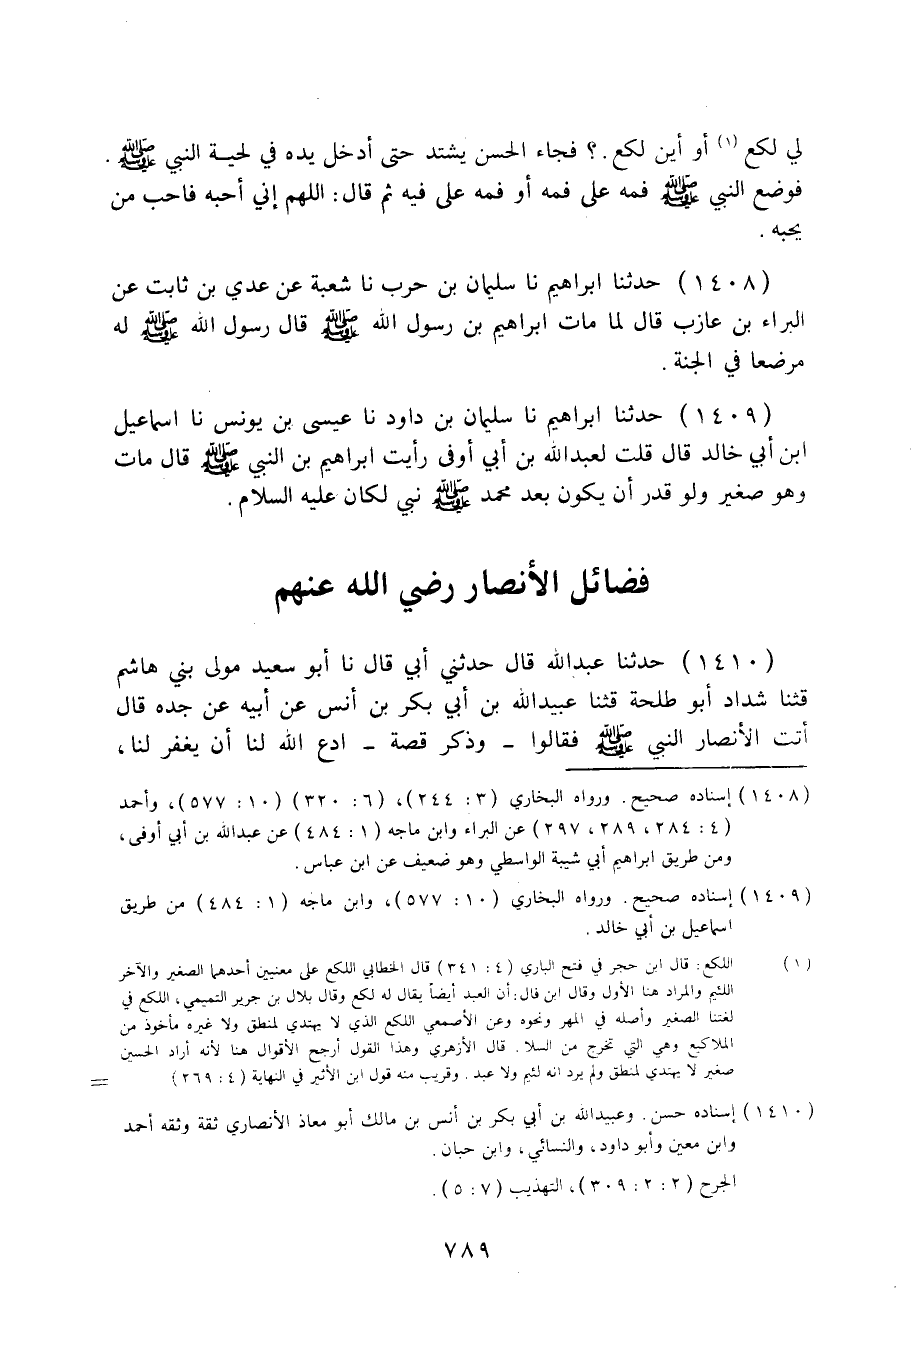 لي لكع (١) أو أين لكع . ؟ فجاء الحسن يشتد حتى أدخل يده في لحية النبي ﷺ .
فوضع النبي ﷺ فمه على فمه أو فمه على فيه ثم قال : اللهم إني أحبه فاحب من
يحبه .
(١٤٠٨) حدثنا ابراهيم نا سليمان بن حرب نا شعبة عن عدي بن ثابت عن
البراء بن عازب قال لما مات ابراهيم بن رسول الله ﷺ قال رسول الله ﷺ له
مرضعا في الجنة .
(١٤٠٩) حدثنا ابراهيم نا سليمان بن داود نا عيسى بن يونس نا اسماعيل
ابن أبي خالد قال قلت لعبدالله بن أبي أوفى رأيت ابراهيم بن النبي ﷺ قال مات
وهو صغير ولو قدر أن يكون بعد محمد ﷺ نبي لكان عليه السلام .
فضائل الأنصار رضي الله عنهم
(١٤١٠) حدثنا عبدالله قال حدثني أبي قال نا أبو سعيد مولى بني هاشم
قثنا شداد أبو طلحة قثنا عبيدالله بن أبي بكر بن أنس عن أبيه عن جده قال
أتت الأنصار النبي ﷺ فقالوا - وذكر قصة - ادع الله لنا أن يغفر لنا ،
(١٤٠٨) إسناده صحيح . ورواه البخاري (٣ : ٢٤٤) ، (٦ : ٣٢٠) (١٠ : ٥٧٧) ، وأحمد
(٤ : ٢٨٤ ، ٢٨٩ ، ٢٩٧) عن البراء وابن ماجه (١ : ٤٨٤) عن عبدالله بن أبي أوفى ،
ومن طريق ابراهيم أبي شيبة الواسطي وهو ضعيف عن ابن عباس .
(١٤٠٩) إسناده صحيح . ورواه البخاري (١٠ : ٥٧٧) ، وابن ماجه (١ : ٤٨٤) من طريق
اسماعيل بن أبي خالد .
(١) اللكع : قال ابن حجر في فتح الباري (٤ : ٣٤١) قال الخطابي اللكع على معنيين أحدهما الصغير والآخر
اللئيم والمراد هنا الأول وقال ابن فال : أن العبد أيضاً يقال له لكع وقال بلال بن جرير التميمي ، اللكع في
لغتنا الصغير وأصله في المهر ونحوه وعن الأصمعي اللكع الذي لا يهتدي لمنطق ولا غيره مأخوذ من
الملاكيع وهي التي تخرج من السلا . قال الأزهري وهذا القول أرجح الأقوال هنا لأنه أراد الحسين
صغير لا يهتدي لمنطق ولم يرد انه لئيم ولا عبد . وقريب منه قول ابن الأثير في النهاية (٤ : ٢٦٩) =
(١٤١٠) إسناده حسن . وعبيدالله بن أبي بكر بن أنس بن مالك أبو معاذ الأنصاري ثقة وثقه أحمد
وابن معين وأبو داود ، والنسائي ، وابن حبان .
الجرح (٢ : ٢ : ٣٠٩) ، التهذيب (٧ : ٥) .
٧٨٩